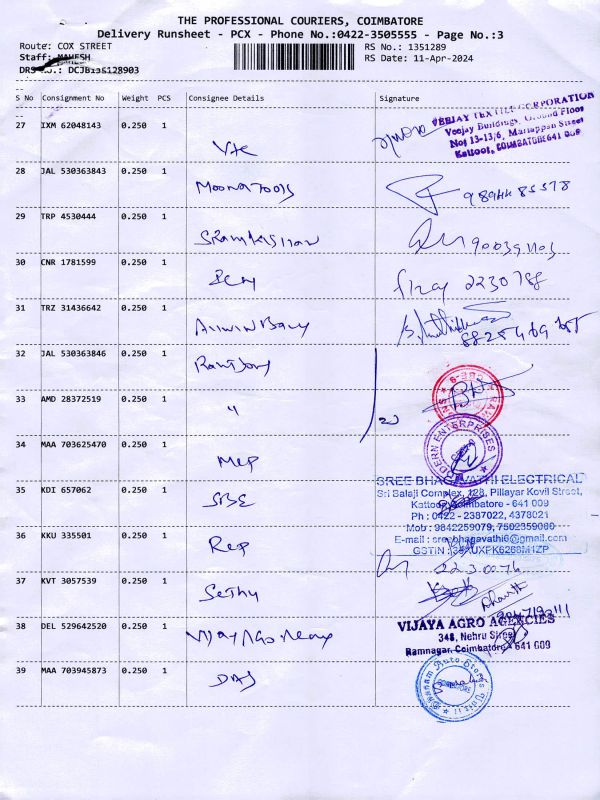 THE PROFESSIONAL COURIERS, COIMBATORE
Delivery Runsheet - PCX - Phone No.:0422-3505555 - Page No.:3
Route: COX STREET
RS No.: 1351289
Staff: MAHESH
RS Date: 11-Apr-2024
DRS No.: DCJB135128903
S No Consignment No Weight PCS Consignee Details Signature
27 IXM 62048143 0.250 1
VEEJAY TEXTILE CORPORATION
Veejay Buildings, Ground Floor
No: 13-13/6, Mariappan Street
Kattoor, COIMBATORE-641 009
28 JAL 530363843 0.250 1 Moona Tools
29 TRP 4530444 0.250 1
30 CNR 1781599 0.250 1 2230788
31 TRZ 31436642 0.250 1
32 JAL 530363846 0.250 1
33 AMD 28372519 0.250 1 "
34 MAA 703625470 0.250 1 Mep
MODERN ENTERPRISES
35 KDI 657062 0.250 1 SBE
SREE BHAGAVATHI ELECTRICAL
Sri Balaji Complex, 128, Pillayar Kovil Street,
Kattoor, Coimbatore - 641 009
Ph : 0422 - 2387022, 4378021
Mob : 9842259079, 7502359080
E-mail : sreebhagavathi6@gmail.com
36 KKU 335501 0.250 1 Rep
37 KVT 3057539 0.250 1 Sethy
38 DEL 529642520 0.250 1
VIJAYA AGRO AGENCIES
348, Nehru Street
Ramnagar, Coimbatore - 641 009
39 MAA 703945873 0.250 1 DAS